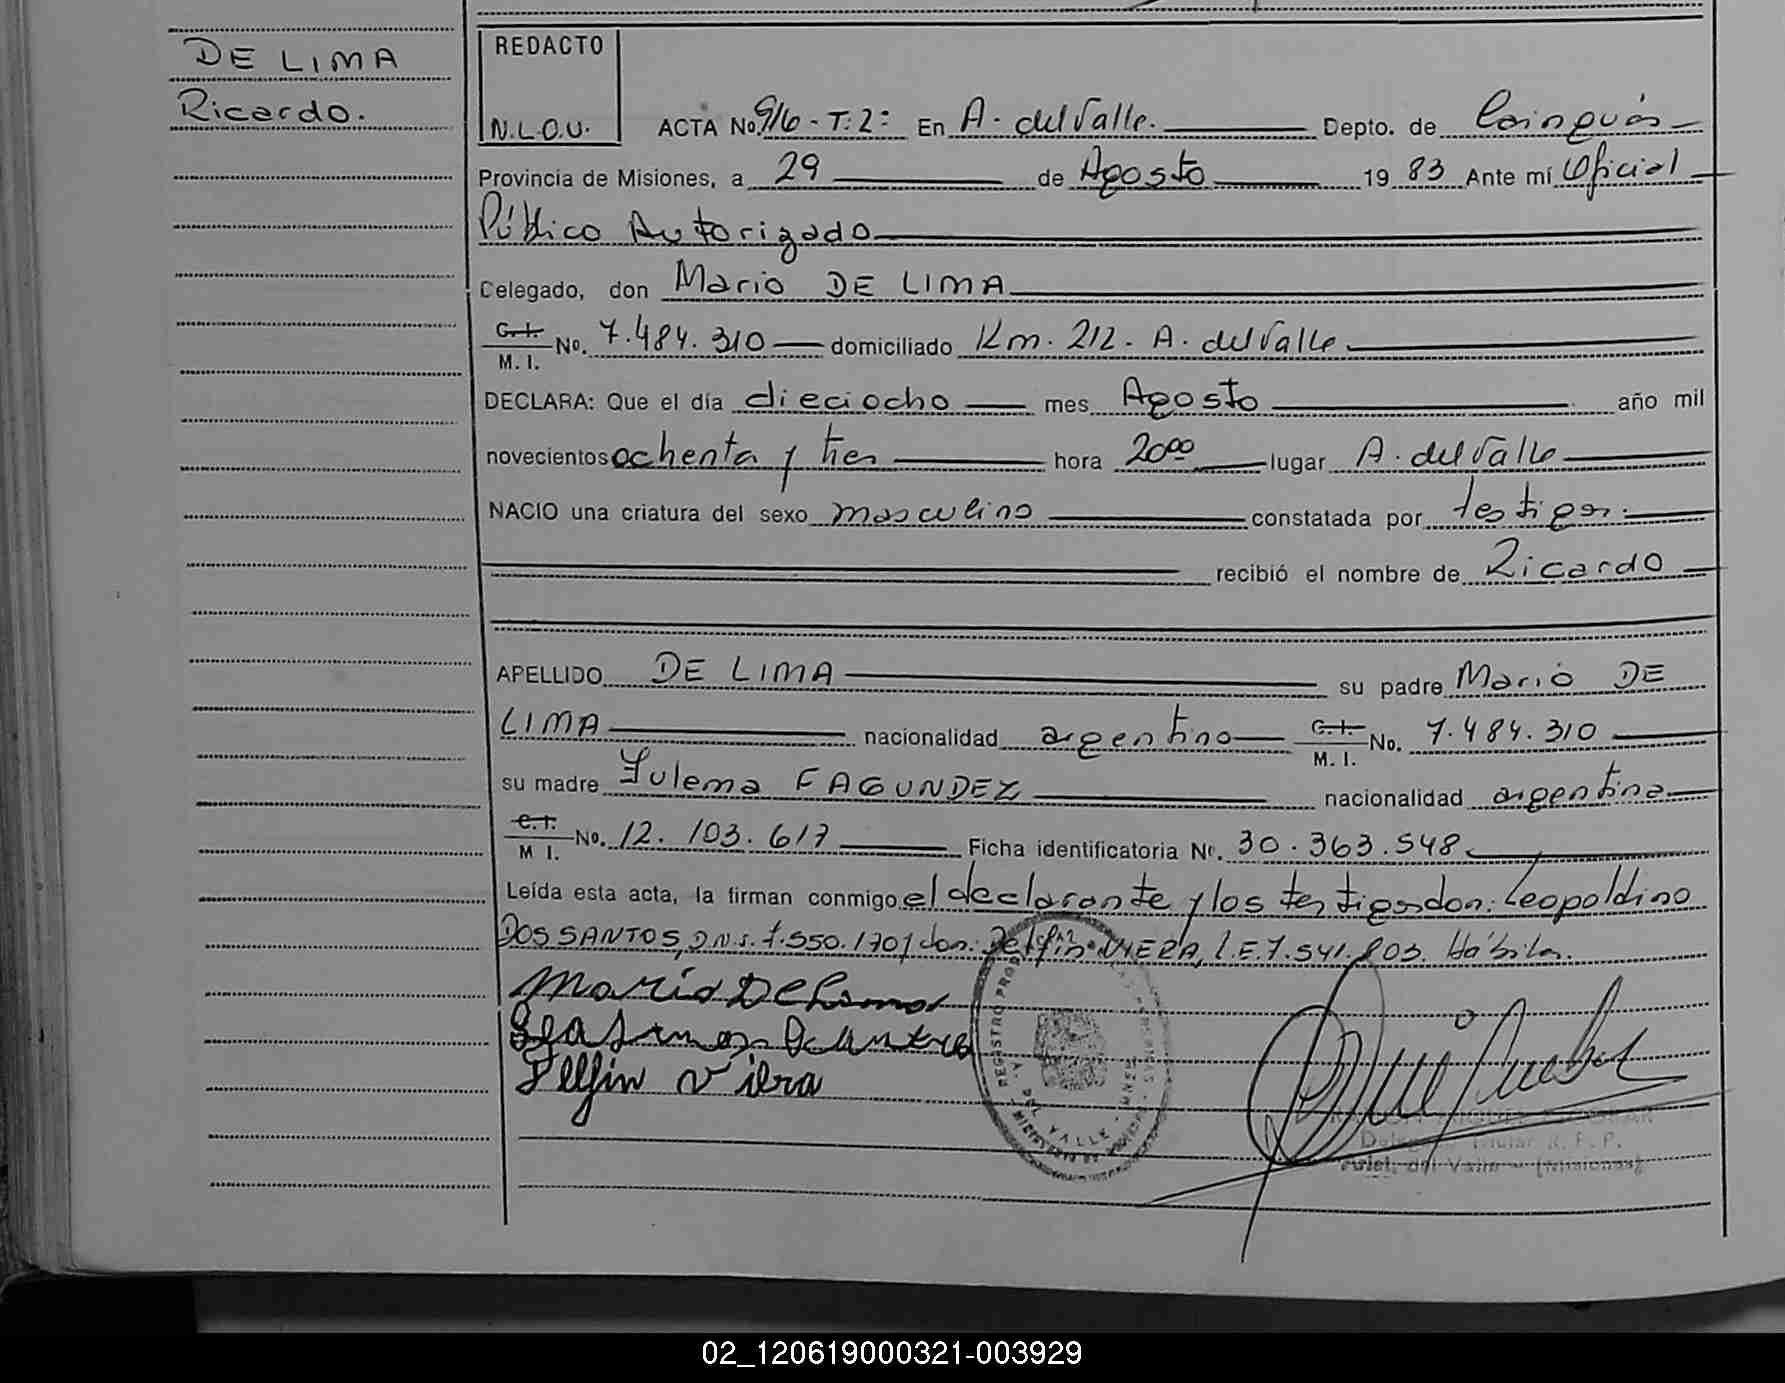 DE LIMA
Ricardo.
REDACTO
N.L.O.U.
ACTA No. 916 - T: 2: En A. del Valle. Depto. de Cainguás
Provincia de Misiones, a 29 de Agosto 19 83 Ante mí Oficial
Público Autorizado
Celegado, don Mario DE LIMA
C. I.
M. I. No. 7.484.310 domiciliado Km. 212 - A. del Valle
DECLARA: Que el día dieciocho mes Agosto año mil
novecientos ochenta y tres hora 20 00 lugar A. del Valle
NACIO una criatura del sexo masculino constatada por testigos.
recibió el nombre de Ricardo
APELLIDO DE LIMA su padre Mario DE
LIMA nacionalidad argentino C. I. M. I. No. 7.484.310
su madre Zulema FAGUNDEZ nacionalidad argentina
C. I.
M I. No. 12.103.617 Ficha identificatoria Nº. 30.363.548
Leída esta acta, la firman conmigo el declarante y los testigos don: Leopoldino
DOS SANTOS, D.N.I. 7.550.170 y don: Delfin VIERA, L.E. 7.541.803. Hábiles.
Mario De Lima
Delfin Viera
REGISTRO PROV
DEL VALLE
Valle - (Misiones)
02_120619000321-003929